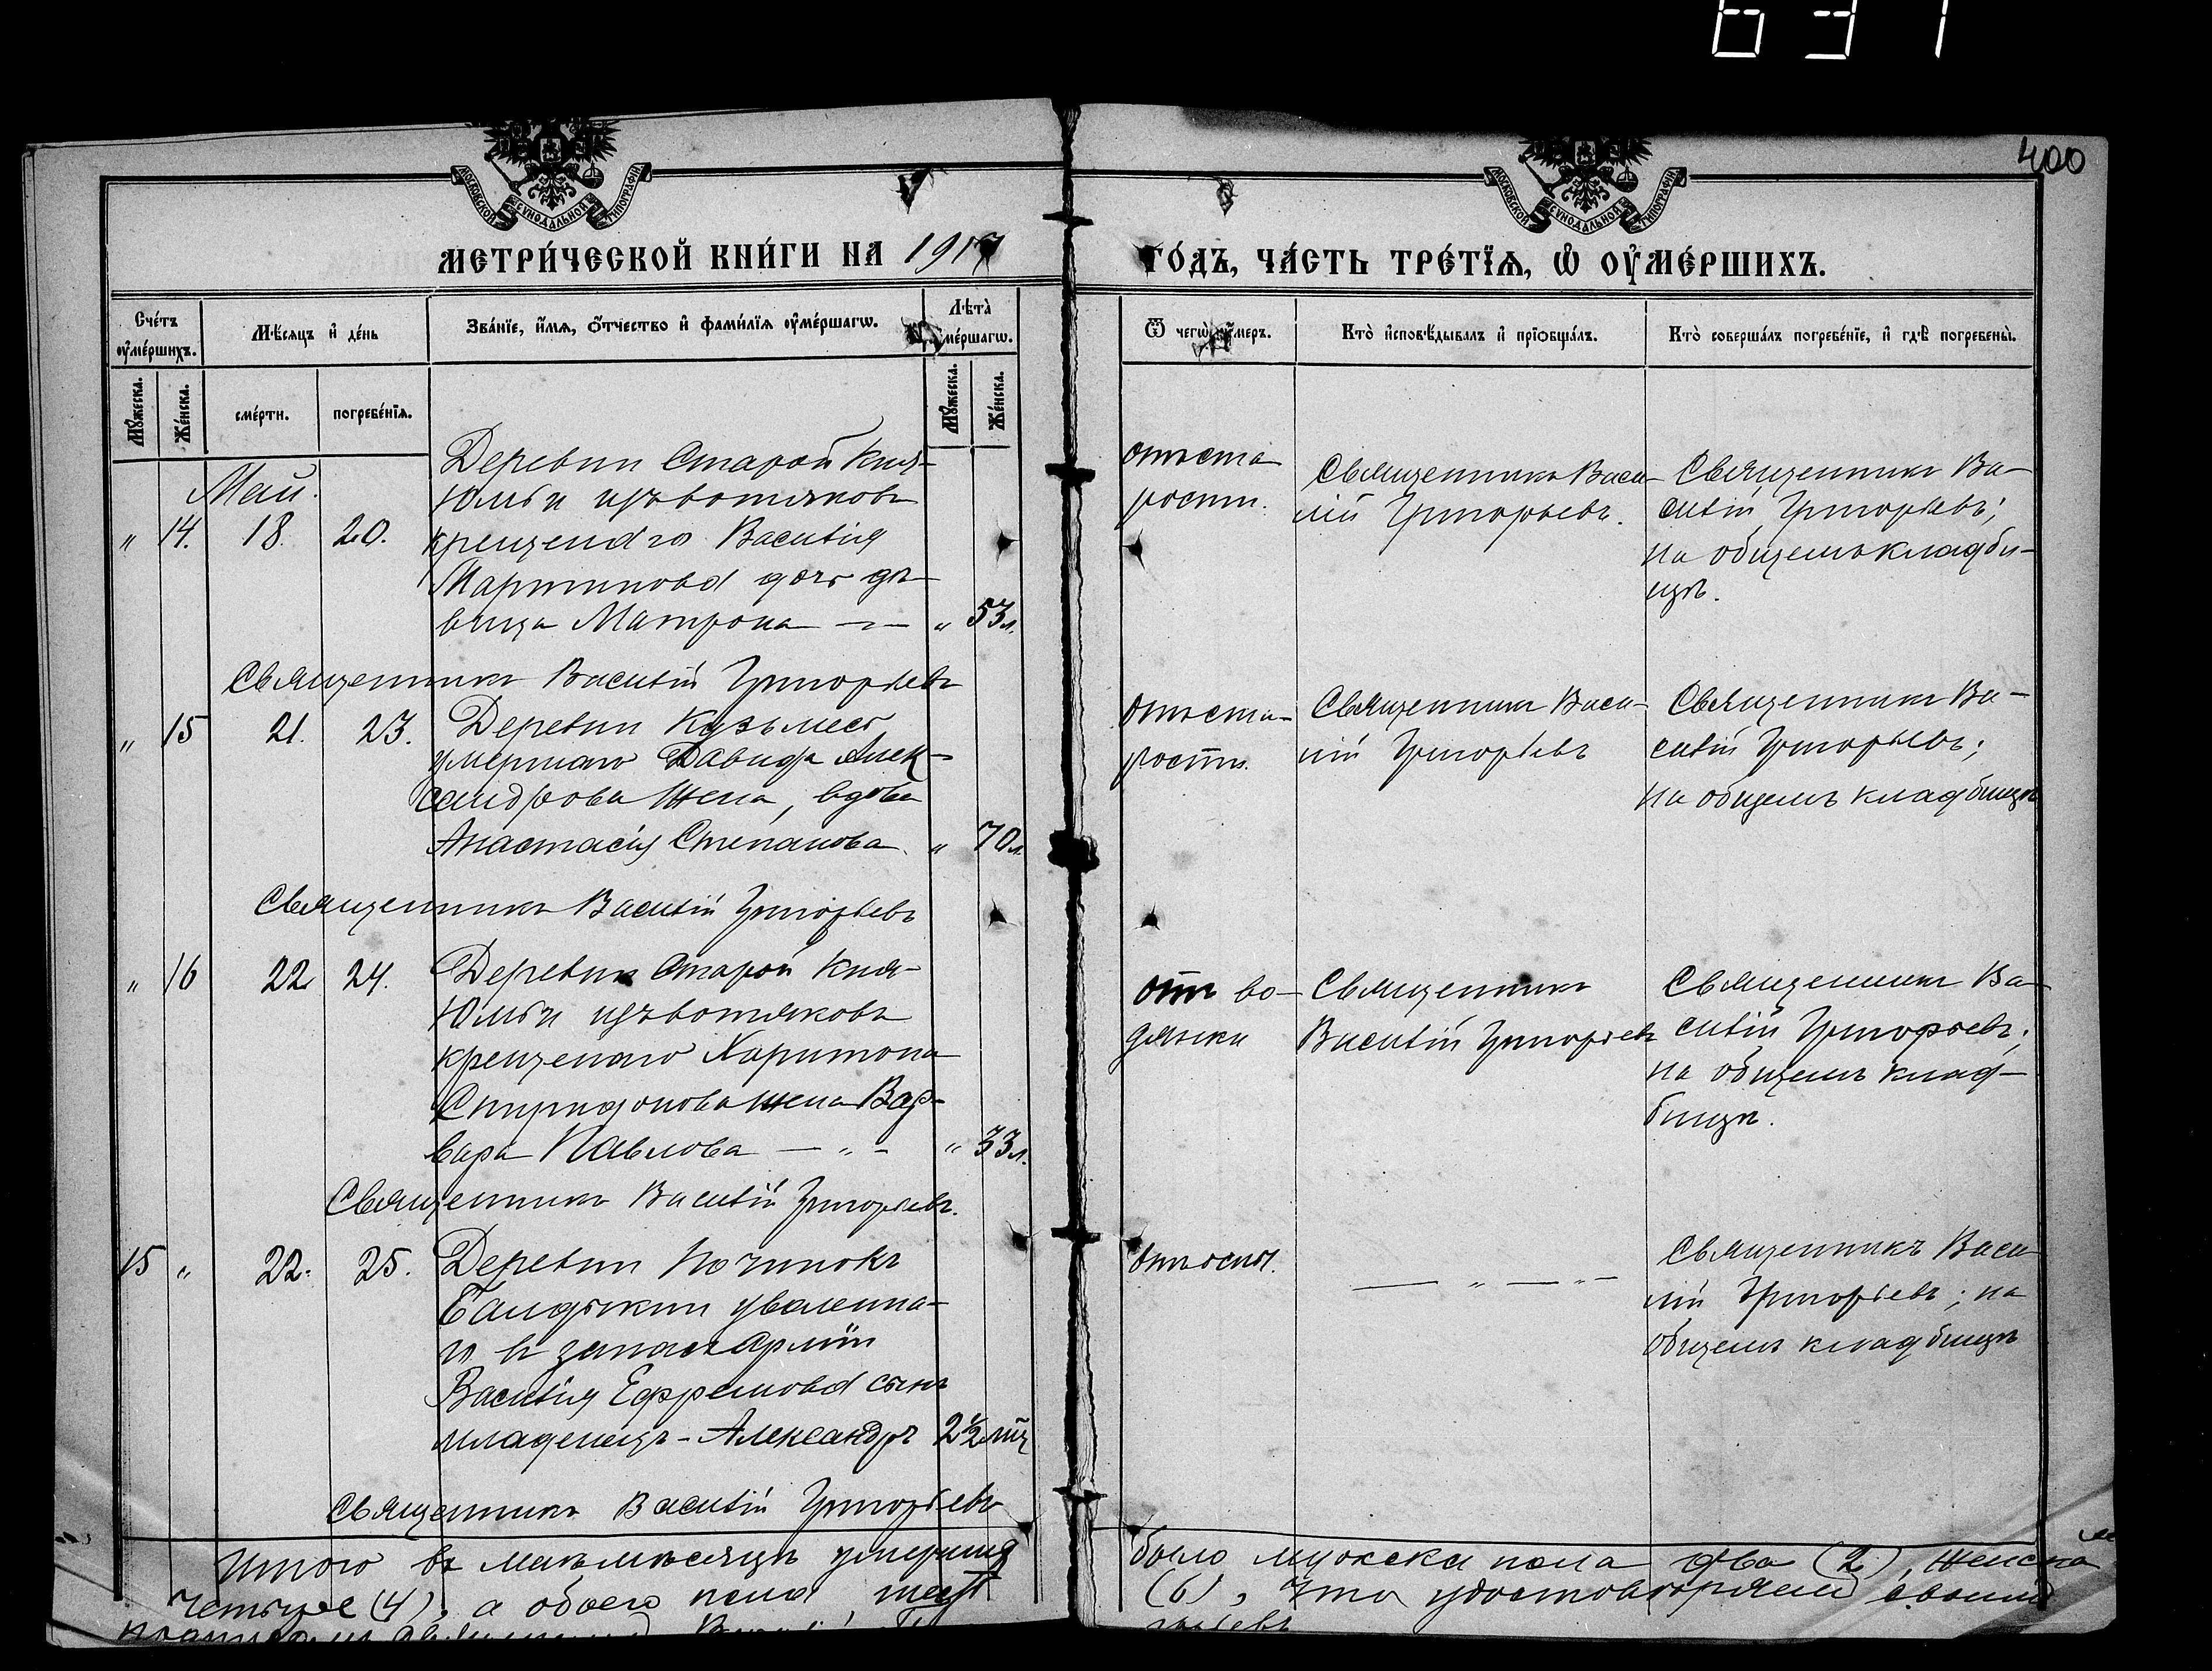 637
400
МОСКОВСКОЙ СѴНОДАЛЬНОЙ ТИПОГРАФІИ
МОСКОВСКОЙ СѴНОДАЛЬНОЙ ТИПОГРАФІИ
МЕТРИ́ЧЕСКОЙ КНИ́ГИ НА 1917
ГО́ДЪ, ЧА́СТЬ ТРЕ́ТЇѦ, Ѡ҆ ОУ҆МЕ́РШИХЪ.
Сче́тъ оу҆ме́ршихъ.
Мѣ́сяцъ и҆ де́нь
Зва́нїе, и҆́мѧ, ѻ҆́тчество и҆ фами́лїѧ оу҆ме́ршагѡ.
Лѣта̀ оу҆ме́ршагѡ.
Ѿ чегѡ̀ оу҆́меръ.
Кто̀ и҆сповѣ́дывалъ и҆ прїѡбща́лъ.
Кто̀ соверша́лъ погребе́нїе, и҆ гдѣ̀ погребены̀.
Мꙋ́жеска.
Же́нска.
сме́рти.
погребе́нїѧ.
Мꙋ́жеска.
Же́нска.
Май.
" 14. 18. 20.
Деревни Старой Кня-
Юмьи изъ вотяковъ
крещенаго Василія
Мартинова дочь дѣ-
вица Матрона — " — " 53 л.
отъ ста-
рости.
Священникъ Васи-
лій Григорьевъ.
Священникъ Ва-
силій Григорьевъ;
на общемъ кладби-
щѣ.
Священникъ Василій Григорьевъ
" 15 21. 23.
Деревни Кузьмесь
умершаго Давида Алек-
сандрова жена, вдова
Анастасія Степанова. " 70 л.
отъ ста-
рости.
Священникъ Васи-
лій Григорьевъ
Священникъ Ва-
силій Григорьевъ;
на общемъ кладбищѣ
Священникъ Василій Григорьевъ
" 16 22 24.
Деревни Старой Кня-
Юмьи изъ вотяковъ
крещенаго Харитона
Спиридонова жена Вар-
вара Павлова — " - " 33 л.
отъ во-
дянки
Священникъ
Василій Григорьевъ
Священникъ Ва-
силій Григорьевъ;
на общемъ клад-
бищѣ.
Священникъ Василій Григорьевъ.
15 " 22. 25.
Деревни Починокъ
уволенна-
го въ запасъ арміи
Василія Ефремова сынъ
младенецъ - Александръ 2½ мц
отъ оспы.
— " — " —
Священникъ Васи-
лій Григорьевъ; на
общемъ кладбищѣ
Священникъ Василій Григорьевъ
Итого въ маѣ мѣсяцѣ умершихъ
было мужска пола два (2), женска
четыре (4), а обоего пола шесть
(6), что удостовѣряемъ своимъ